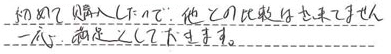 初めて購入したので、他との比較は出来てません
一応、満足としておきます。